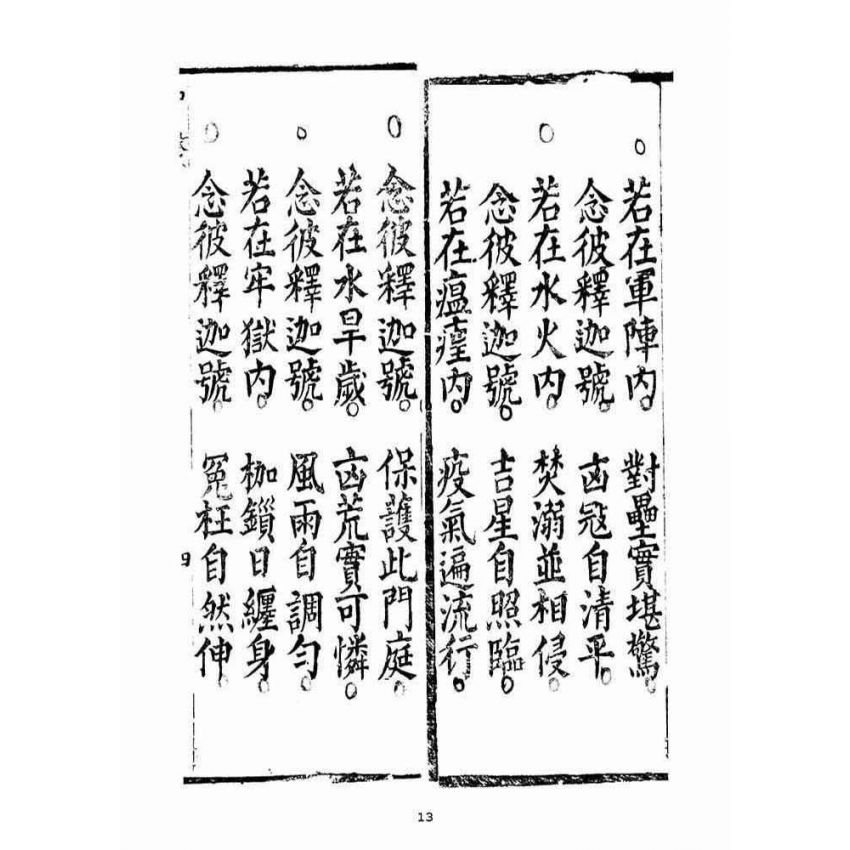 若在軍陣內。對壘實堪驚。
念彼釋迦號。凶冦自清平。
若在水火內。焚溺並相侵。
念彼釋迦號。吉星自照臨。
若在瘟𤶊內。疫氣遍流行。
念彼釋迦號。保護此門庭。
若在水旱歲。凶荒實可憐。
念彼釋迦號。風雨自調勻。
若在牢獄內。枷鎖日纏身。
念彼釋迦號。冤枉自然伸。
四
13